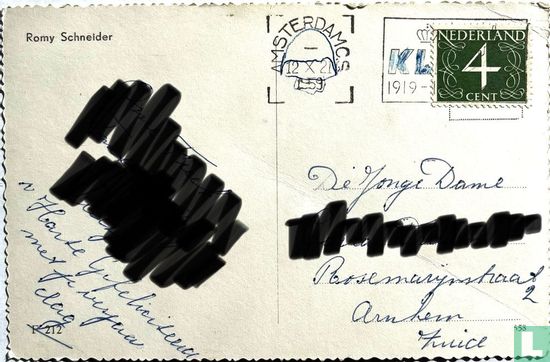 Romy Schneider
AMSTERDAM C.S
12 X 21
1959
KL
1919-
NEDERLAND
4
CENT
v Harte Gefeliciteerd
met je verjaar
dag
De Jonge Dame
Rosemarijnstraat
2
Arnhem
Zuid
F 212
658